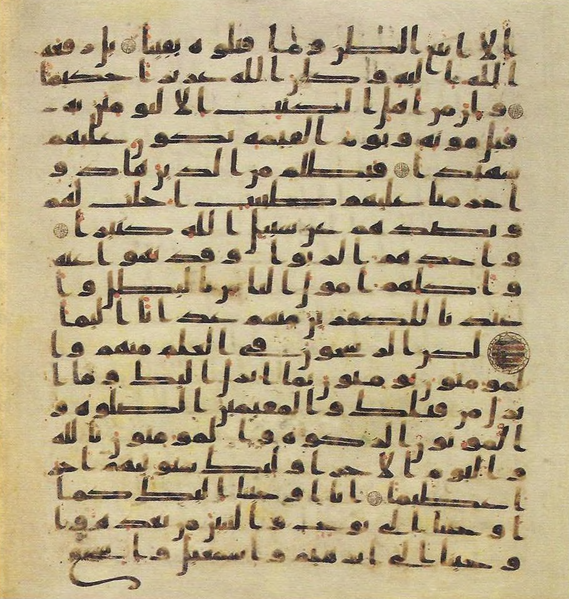 الا اتباع الظن وما قتلوه يقينا بل رفعه
الله اليه وكان الله عزيزا حكيما
وان من اهل الكتب الا ليومنن به
قبل موته ويوم القيمه يكون عليهم
شهيدا فبظلم من الذين هادو
ا حرمنا عليهم طيبت احلت لهم
وبصدهم عن سبيل الله كثيرا
واخذهم الربوا وقد نهوا عنه
واكلهم امول الناس بالبطل وا
عتدنا للكفرين منهم عذابا اليما
لكن الرسخون في العلم منهم وا
لمومنون يومنون بما انزل اليك وما ا
نزل من قبلك والمقيمين الصلوه و
الموتون الزكوه والمومنون بالله
واليوم الاخر اوليك سنوتيهم اجر
ا عظيما انا اوحينا اليك كما
اوحينا الى نوح والنبين من بعده وا
وحينا الى ابرهيم واسمعيل واسحق